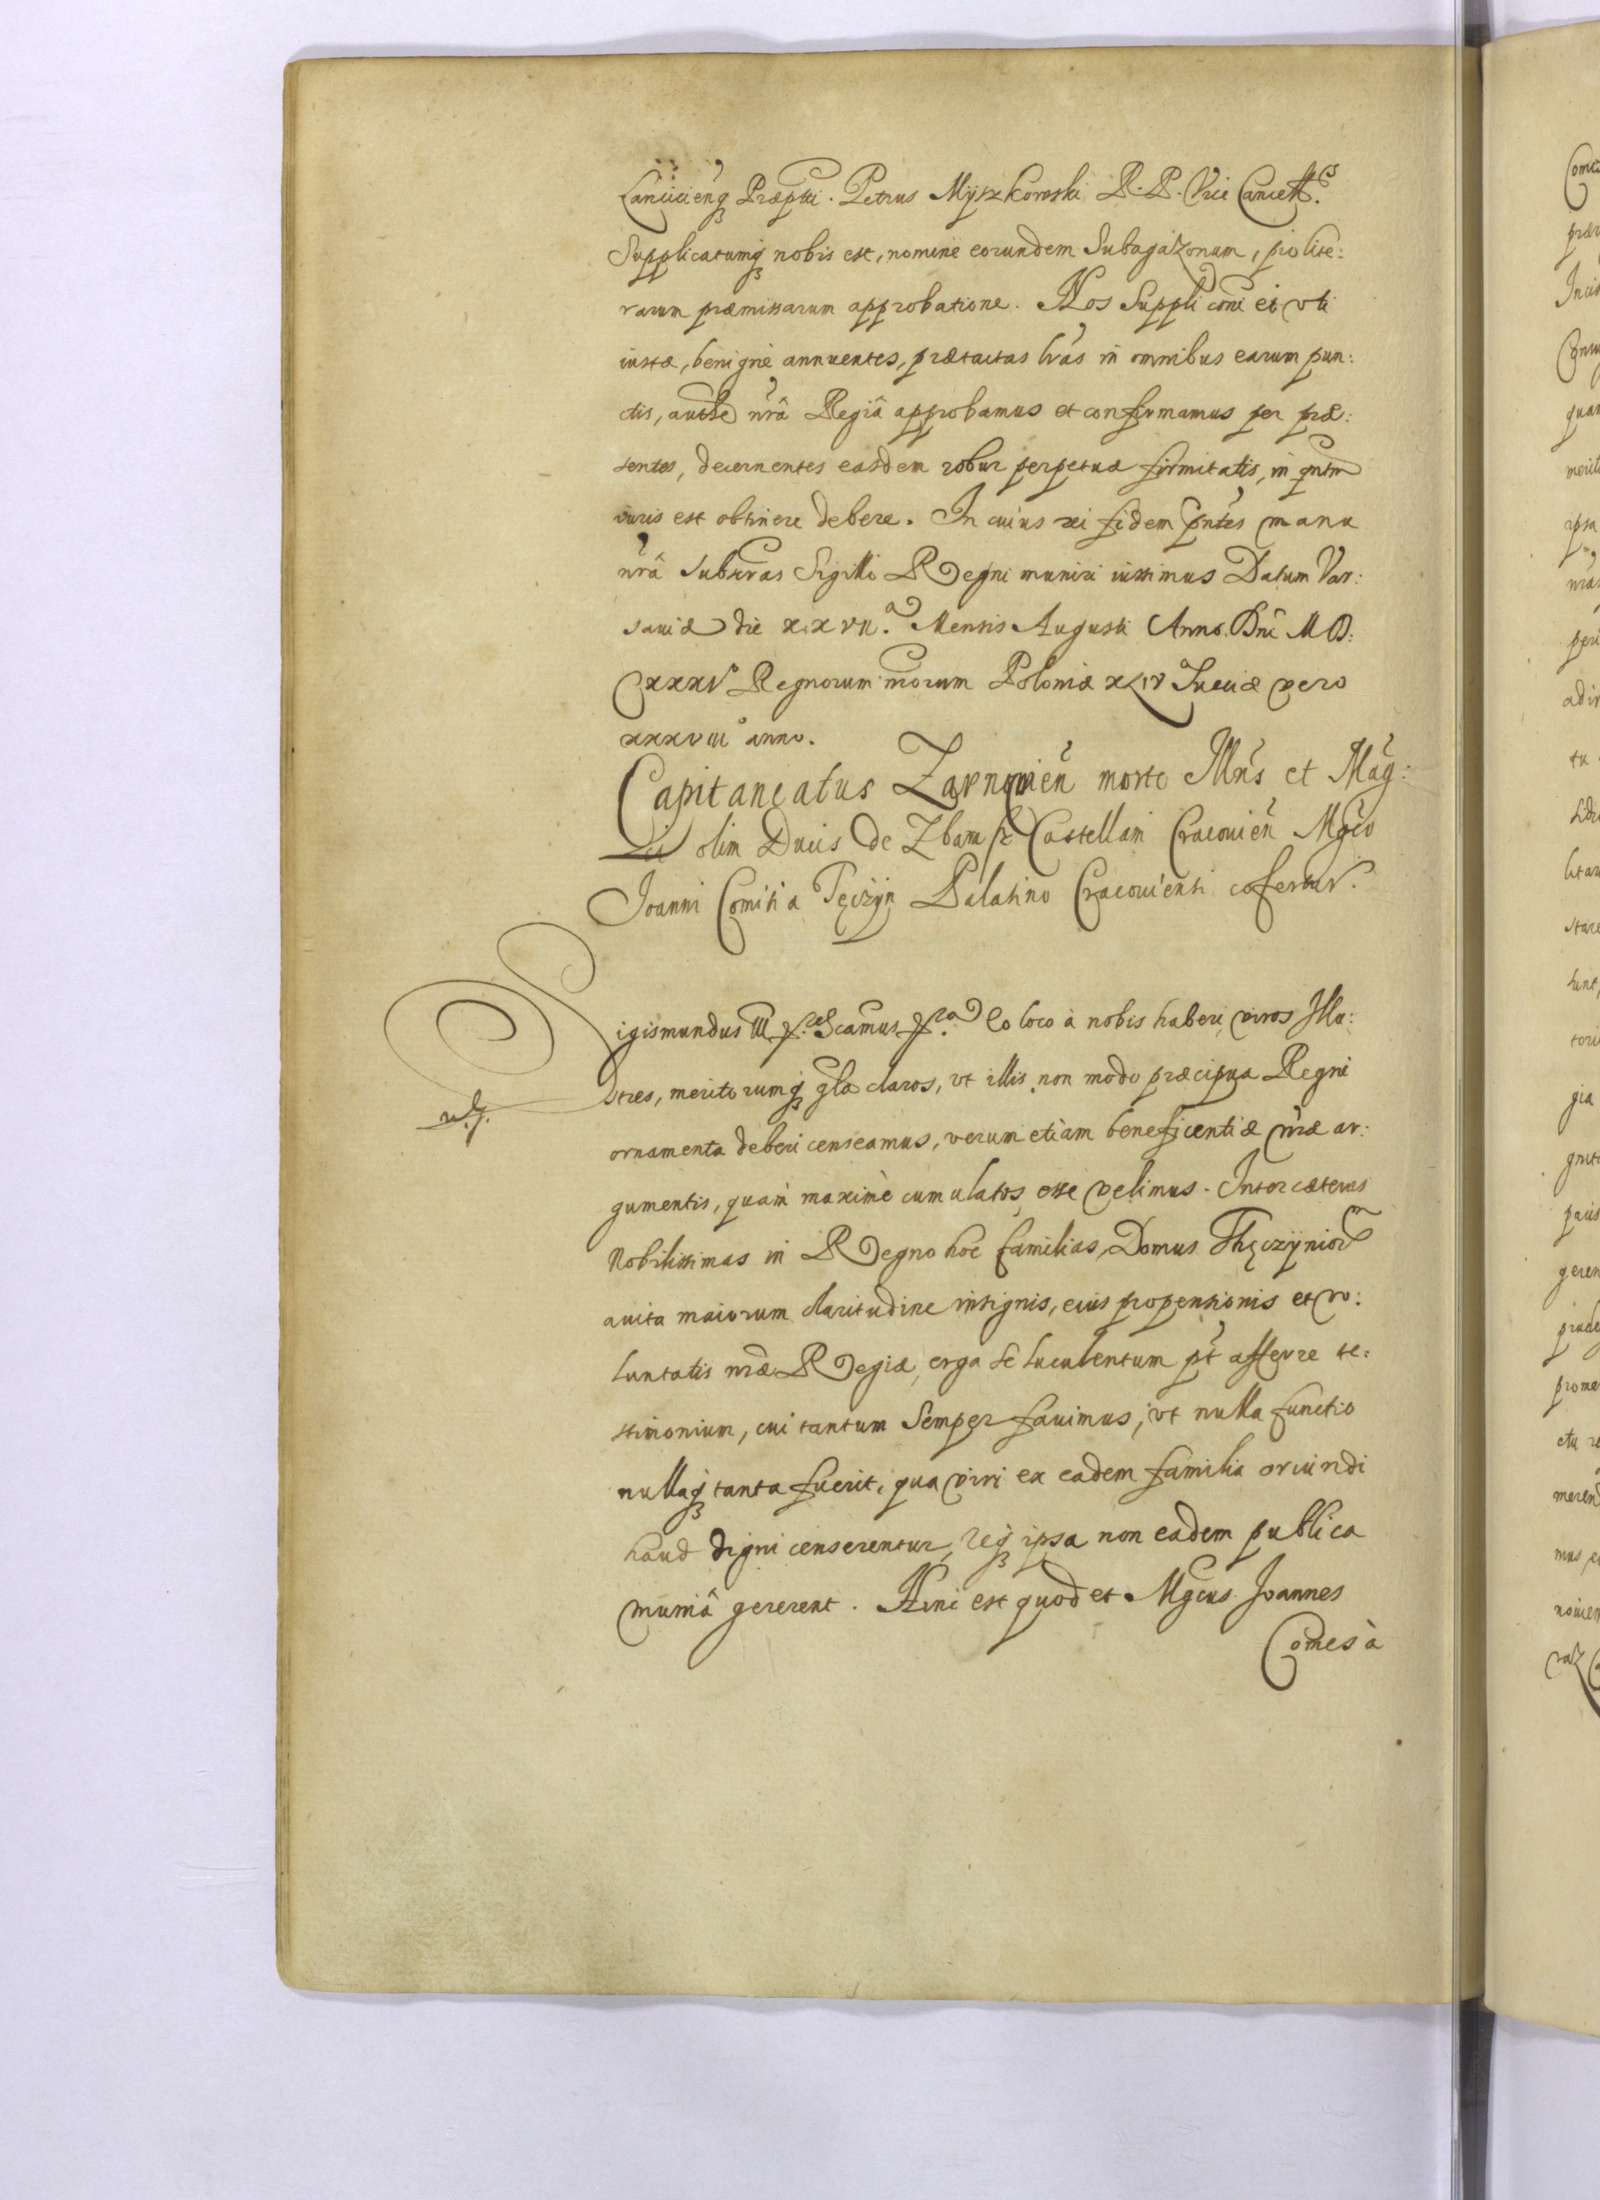 Lanciciens̃ Præpti. Petrus Myszkowski R. P. Vice Cancell.
Supplicatumq nobis est, nomine eorundem Subagazonum, pro lite:
rarum præmissarum approbatione. Nos Supplicõni ei vti
iustæ, benignè annuentes, prætactas lr̃as in omnibus earum pun:
ctis, authe nr̃â Regiâ approbamus et confirmamus per præ:
sentes, decernentes easdem robur perpetuæ firmitatis, in qntm
iuris est obtinere debere. In cuius rei fidem pñtes manu
nr̃â subscras Sigillo Regni muniri iussimus Datum Var:
saviæ die xxvii.a Mensis Augusti Anno. Dni MD:
Cxxxi Regnorum nrorum Poloniæ xliv Sueciæ vero
xxxviii anno.
Capitaneatus Zarnovień morte Illris et Mag:
ci olim Ducis de Zbaraż Castellani Cracovień Mgco
Joanni Comiti à Tęczyn Palatino Cracovienti cõfertur.
igismundus III etc. Scamus etc. Eo loco à nobis haberi viros Illu:
stres, meritorumq gla claros, vt illis non modo præcipua Regni
ornamenta deberi censeamus, verum etiam beneficentiæ nr̃æ ar:
gumentis, quam maximè cumulatos esse velimus. Inter cæteras
Nobilissimas in Regno hoc familias, Domus Thęczyniorm
avita maiorum claritudine insignis, eius propensionis et vo:
luntatis nræ Regiæ, erga se luculentum pt afferre te:
stimonium, cui tantum Semper favimus, vt nulla functio
nullaq tanta fuerit, qua viri ex eadem familia oriundi
haud digni censerentur, req ipsa non eadem publica
muniâ gererent. Hinc est quod et Mgcus Joannes
Comes à